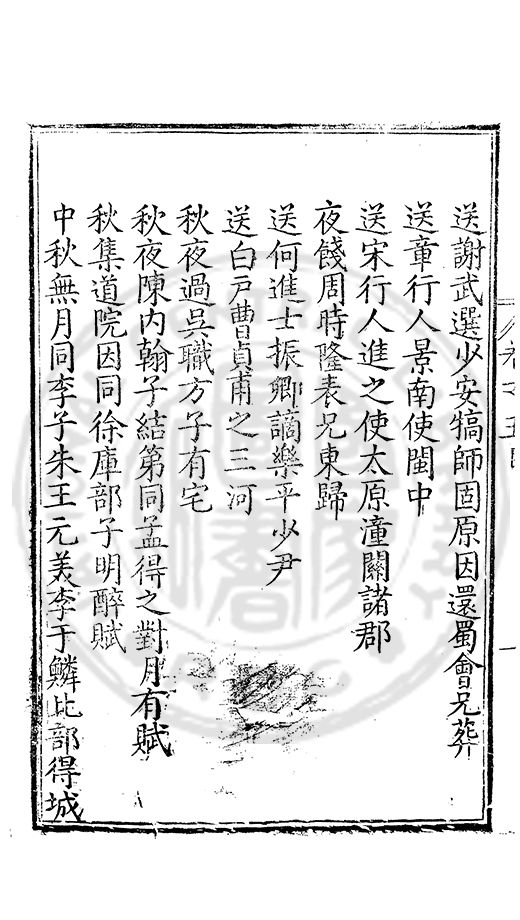 送謝武選少安犒師固原因還蜀會兄葬
送童行人景南使閩中
送宋行人進之使太原潼關諸郡
夜餞周時隆表兄東歸
送何進士振卿謫樂平少尹
送白戶曹貞甫之三河
秋夜過吳職方子有宅
秋夜陳內翰子結第同孟得之對月有賦
秋集道院因同徐庫部子明醉賦
中秋無月同李子朱王元美李于鱗比部得城